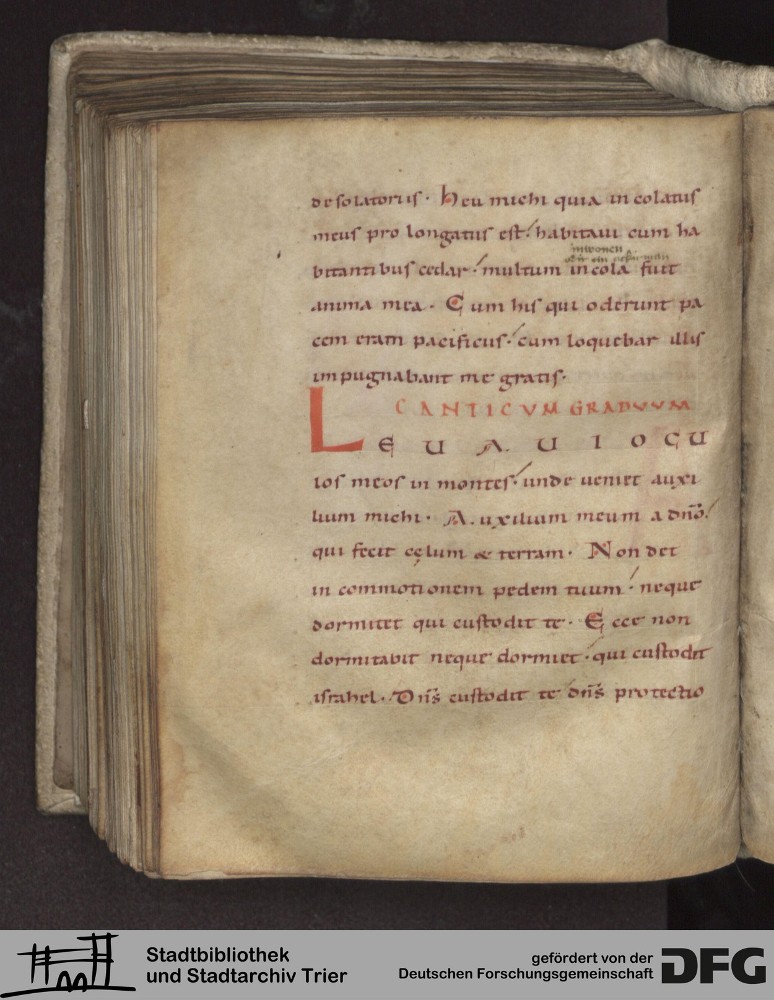 desolatoriis · Heu michi quia incolatus
meus prolongatus est : habitaui cum ha
bitantibus cedar : multum incola fuit
anima mea · Cum his qui oderunt pa
cem eram pacificus : cum loquebar illis
impugnabant me gratis ·
CANTICVM GRADVVM
LEUAUI OCU
los meos in montes : unde ueniet auxi
lium michi · Auxilium meum a dño :
qui fecit cęlum & terram · Non det
in commotionem pedem tuum : neque
dormitet qui custodit te · Ecce non
dormitabit neque dormiet : qui custodit
israhel · Dñs custodit te dñs protectio
Stadtbibliothek
und Stadtarchiv Trier
gefördert von der
Deutschen Forschungsgemeinschaft
DFG